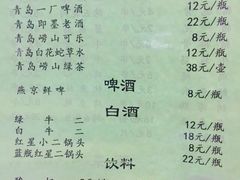 青岛一厂啤酒 12元/瓶
青岛即墨老酒 22元/瓶
青岛崂山可乐 8元/瓶
青岛白花蛇草水 12元/瓶
青岛崂山绿茶 38元/壶
啤酒
燕京鲜啤 8元/瓶
白酒
绿牛二 12元/瓶
白牛二 18元/瓶
红星小二锅头 8元/瓶
蓝瓶红星二锅头 22元/瓶
饮料